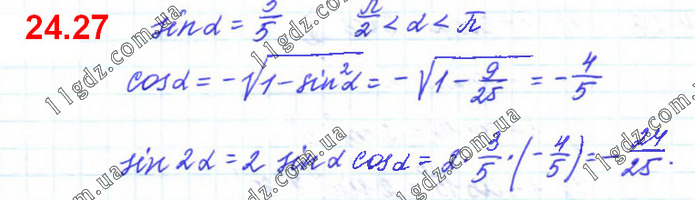 24.27 sinα = 3/5 π/2 < α < π
cosα = -√(1 - sin²α) = -√(1 - 9/25) = -4/5
sin 2α = 2 sinα cosα = 2 · 3/5 · (-4/5) = -24/25.
11gdz.com.ua
11gdz.com.ua
11gdz.com.ua
11gdz.com.ua